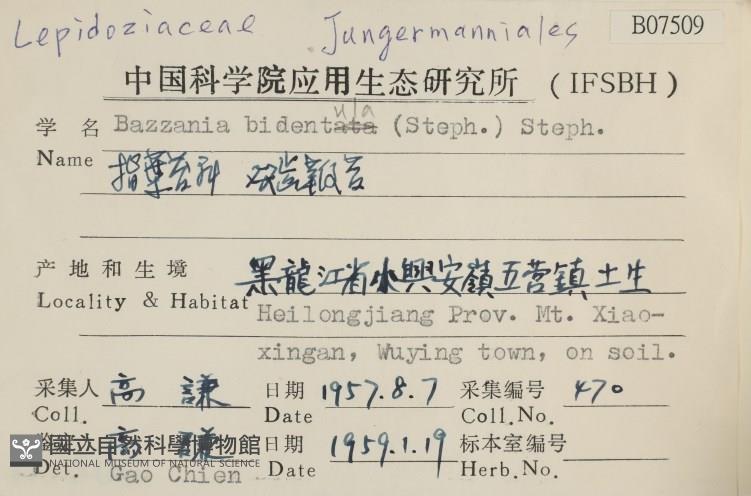 Lepidoziaceae Jungermanniales B07509
中国科学院应用生态研究所 (IFSBH)
学 名 Bazzania bidentata (Steph.) Steph.
ula
Name 指葉苔科 双齿鞭苔
产 地 和 生 境 黑龍江省小興安嶺五营鎮土生
Locality & Habitat Heilongjiang Prov. Mt. Xiao-
xingan, Wuying town, on soil.
采集人 高 謙 日期 1957.8.7 采集编号 470
Coll. Date Coll.No.
高 謙 日期 1959.1.19 标本室编号
Det. Gao Chien Date Herb.No.
國立自然科學博物館
NATIONAL MUSEUM OF NATURAL SCIENCE